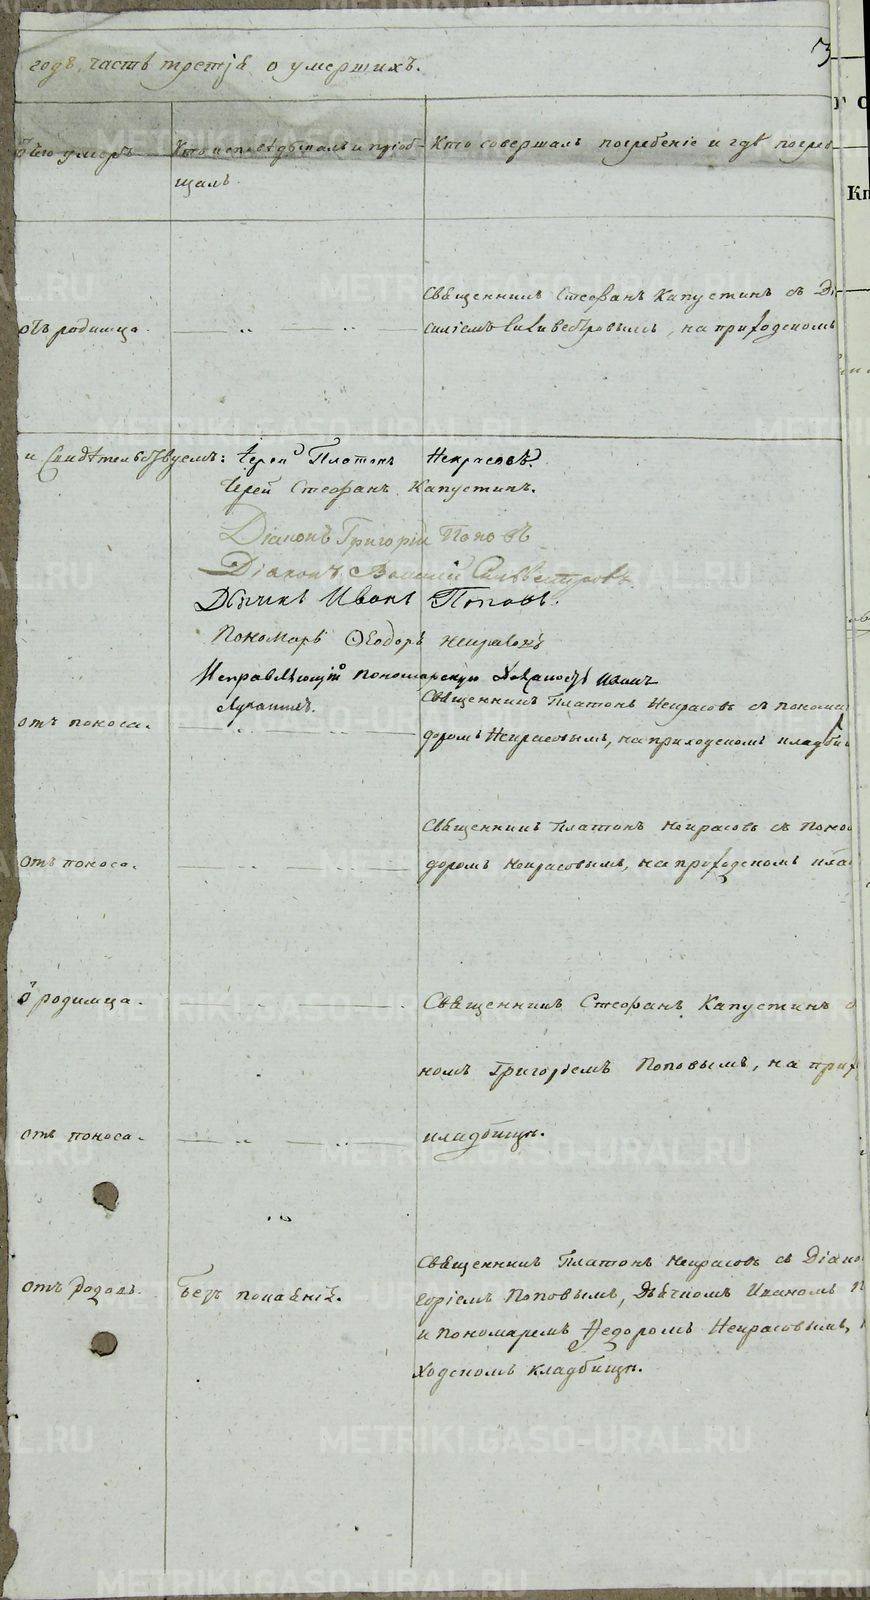 годъ, часть третія о умершихъ.
3
чего умеръ
Кто исповѣдывалъ и пріоб-
щалъ.
Кто совершалъ погребеніе и гдѣ погреб
Священникъ Стефанъ Капустинъ съ Ді
отъ родимца.
силіемъ Силивестровымъ, на приходскомъ
и Свидѣтельствуемъ: Іерей Платонъ Некрасовъ.
Іерей Стефанъ Капустинъ.
Діаконъ Григорій Поповъ
Діаконъ Василій Сильвестровъ
Дьячикъ Иванъ Поповъ.
Пономарь Ѳеодоръ Некрасовъ
Исправляющій пономарскую должность Иванъ
Священникъ Платонъ Некрасовъ съ понома
отъ поноса.
доромъ Некрасовымъ, на приходскомъ кладби
Священникъ Платонъ Некрасовъ съ Поно
отъ поноса.
доромъ Некрасовымъ, на приходскомъ кла
отъ родимца.
Священникъ Стефанъ Капустинъ с
номъ Григоріемъ Поповымъ, на прих
отъ поноса.
кладбищѣ.
Священникъ Платонъ Некрасовъ съ Діако
отъ родовъ.
Безъ покаянія.
горіемъ Поповымъ, Дьячкомъ Иваномъ П
и пономаремъ Ѳедоромъ Некрасовымъ,
ходскомъ кладбищѣ.
METRIKI.GASO-URAL.RU